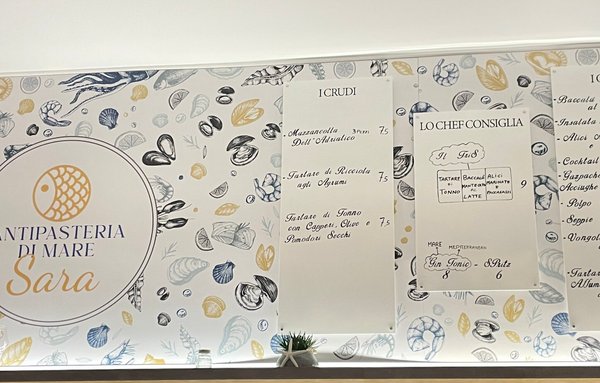 ANTIPASTERIA
DI MARE
Sara
I CRUDI
- Mazzancolla 3 Pezzi 7,5
Dell'Adriatico
- Tartare di Ricciola 7,5
agli Agrumi
- Tartare di Tonno 7,5
con Capperi, Olive e
Pomodori Secchi
LO CHEF CONSIGLIA
Il Tris
TARTARE DI TONNO
BACCALÀ MANTECATO LATTE
ALICI MARINATE
9
MARE MEDITERRANEAN
Gin Tonic - SPritz
8 6
I C
- Baccalà
al
- Insalata
- Alici
- Cocktail
- Gazpacho
Acciughe
- Polpo
- Seppie
- Vongol
- Tartare